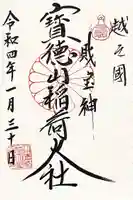 越之國
財宝神
寳徳山稲荷大社
令和四年一月三十日